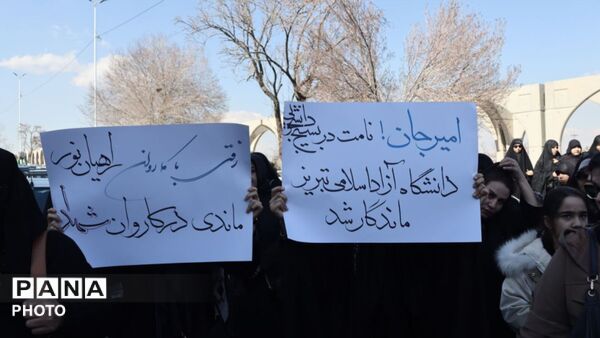 امیرجان! نامت در بسیج دانشجویی
دانشگاه آزاد اسلامی تبریز
ماندگار شد
رفتی با کاروان راهیان نور
ماندی در کاروان شهدا
PANA
PHOTO